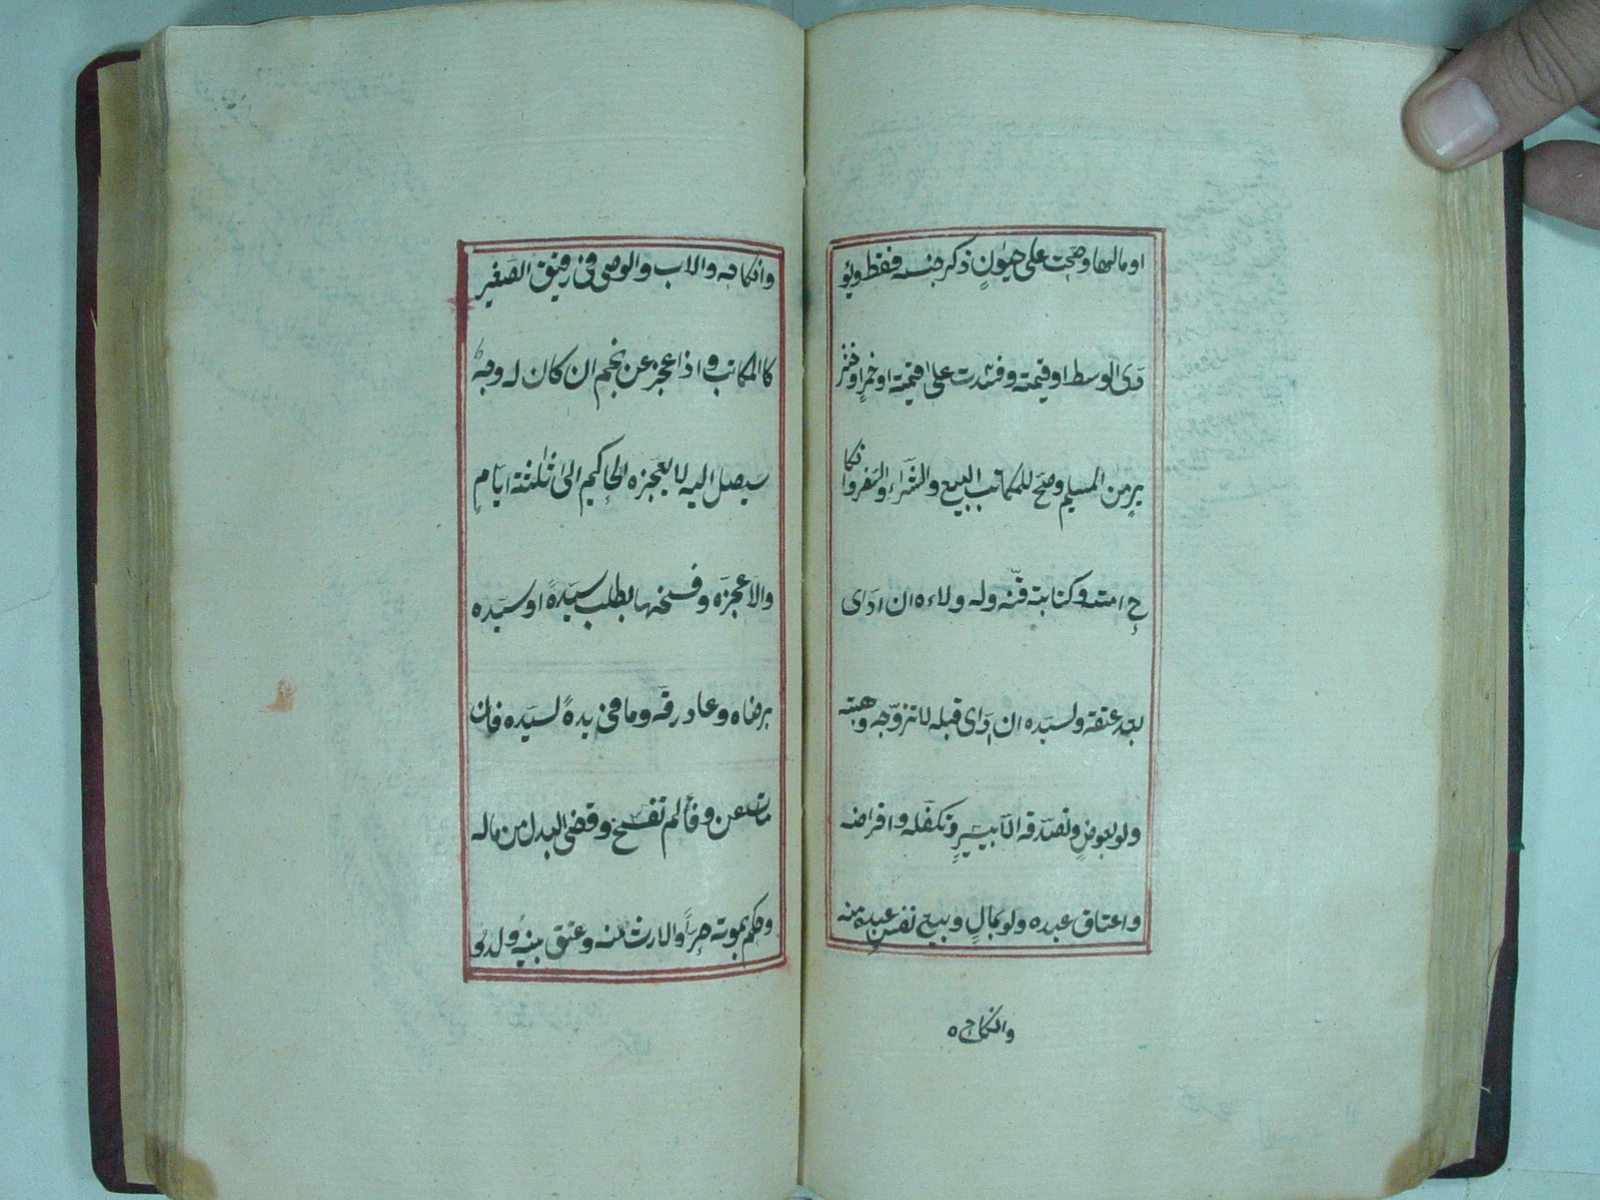 او مالها وصحت على حيوانٍ ذكر جنسه فقط ويؤ
دى الوسط او قيمته وفسدت على قيمته او خمرٍ او خنز
يرٍ من المسلم وصح للمكاتب البيع والشراء والسفر وانكا
ح امته وكتابة قنه وله ولاءه ان ادى
بعد عتقه ولسيده ان ادى قبله لا تزوجه وهبته
ولو بعوضٍ وتصدقه الا بيسيرٍ وتكفله واقراضه
واعتاق عبده ولو بمالٍ وبيع نفس عبده منه
وانكاحه
وانكاحه والاب والوصى فى رقيق الصغير
كالمكاتب واذا عجز عن نجم ان كان له وجه
سيصل اليه لا يعجزه الحاكم الى ثلثة ايامٍ
والا عجزه وفسخها بطلب سيده او سيده
برضاه وعاد رقه وما فى يده لسيده فان
مات عن وفاء لم تفسخ وقضى البدل من ماله
وحكم بموته حراً والارث منه وعتق بنيه ولدو